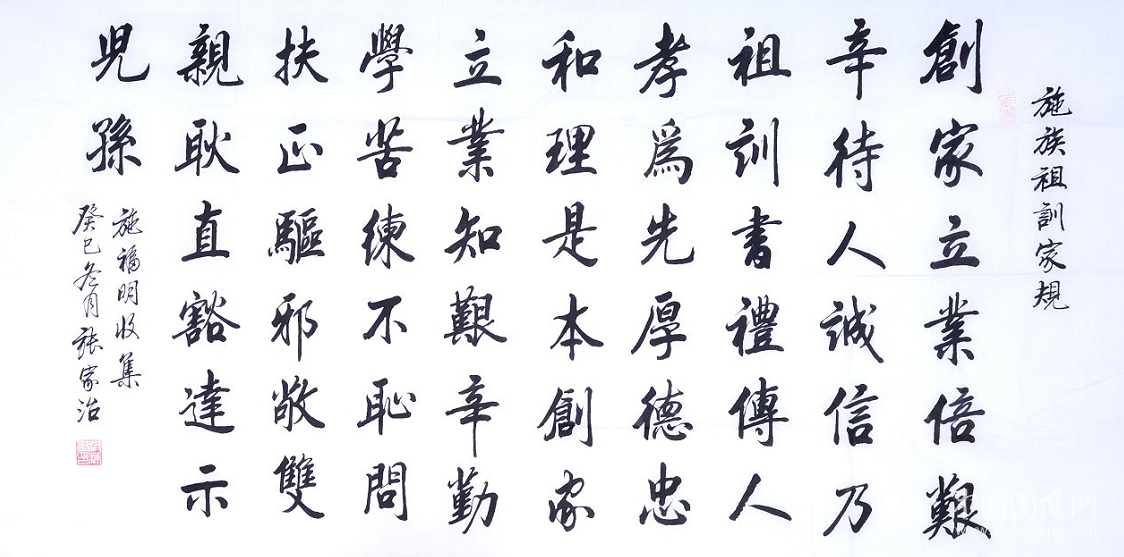 施族祖訓家規
創家立業倍艱
辛待人誠信乃
祖訓書禮傳人
孝為先厚德忠
和理是本創家
立業知艱辛勤
學苦練不恥問
扶正驅邪敬雙
親耿直豁達示
兒孫
施福明收集
癸巳冬月張家治